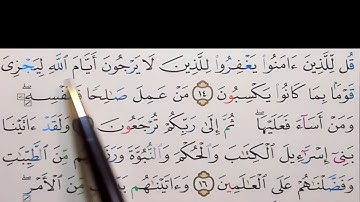 قُل لِّلَّذِينَ ءَامَنُوا۟ يَغْفِرُوا۟ لِلَّذِينَ لَا يَرْجُونَ أَيَّامَ ٱللَّهِ لِيَجْزِىَ
قَوْمًۢا بِمَا كَانُوا۟ يَكْسِبُونَ ١٤ مَنْ عَمِلَ صَـٰلِحًا فَلِنَفْسِهِۦ
وَمَنْ أَسَآءَ فَعَلَيْهَا ثُمَّ إِلَىٰ رَبِّكُمْ تُرْجَعُونَ وَلَقَدْ ءَاتَيْنَا
بَنِىٓ إِسْرَٰٓءِيلَ ٱلْكِتَـٰبَ وَٱلْحُكْمَ وَٱلنُّبُوَّةَ وَرَزَقْنَـٰهُم مِّنَ ٱلطَّيِّبَـٰتِ
وَفَضَّلْنَـٰهُمْ عَلَى ٱلْعَـٰلَمِينَ ١٦ وَءَاتَيْنَـٰهُم بَيِّنَـٰتٍ مِّنَ ٱلْأَمْرِ